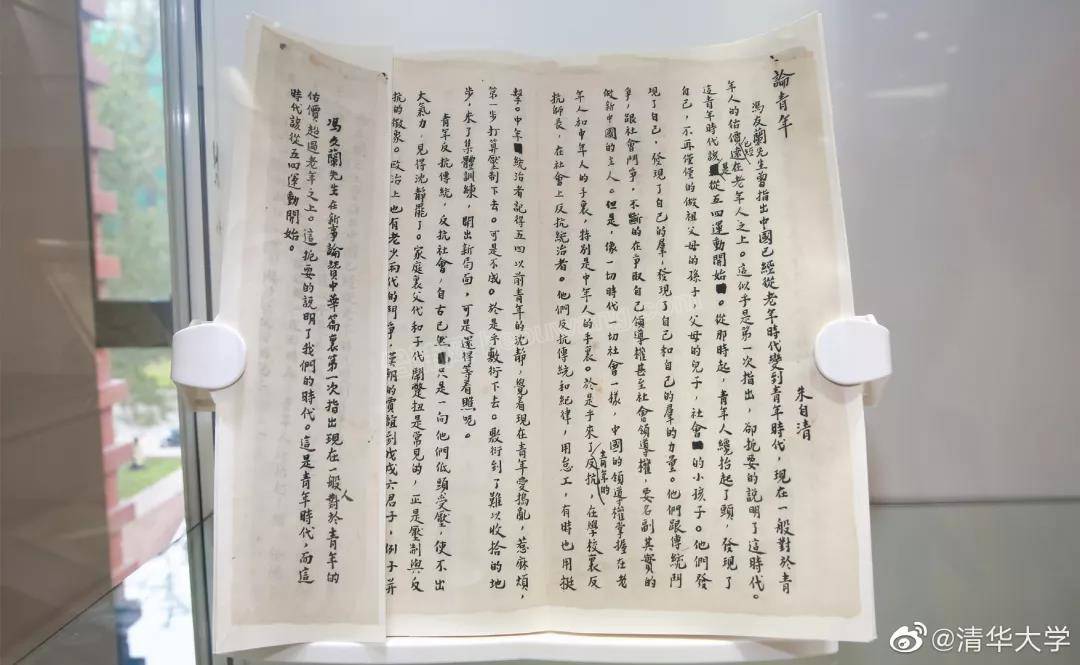 論青年
朱自清
馮友蘭先生曾指出中國已經從老年時代變到青年時代，現在一般對於青
年人的估價已經遠在老年人之上。這似乎是第一次指出，卻扼要的說明了這時代。
這青年時代該是從五四運動開始。從那時起，青年人纔抬起了頭，發現了
自己，不再僅僅的做祖父母的孫子，父母的兒子，社會的小孩子。他們發
現了自己，發現了自己的羣，發現了自己和自己的羣的力量。他們跟傳統鬥
爭，跟社會鬥爭，不斷的在爭取自己領導權甚至社會領導權，要名副其實的
做新中國的主人。但是，像一切時代一切社會一樣，中國的領導權掌握在老
年人和中年人的手裏，特別是中年人的手裏。於是乎來了青年的反抗，在學校裏反
抗師長，在社會上反抗統治者。他們反抗傳統和紀律，用怠工，有時也用挺
擊。中年統治者記得五四以前青年的沈靜，覺着現在青年愛搗亂，惹麻煩，
第一步打算壓制下去。可是不成。於是乎敷衍下去。敷衍到了難以收拾的地
步，來了集體訓練，開出新局面，可是還得等着瞧呢。
青年反抗傳統，反抗社會，自古已然，只是一向他們低頭受壓，使不出
大氣力，見得沈靜罷了。家庭裏父代和子代鬧彆扭是常見的，正是壓制與反
抗的徵象。政治上也有老少兩代的鬥爭，漢朝的賈誼到戊戌六君子，例子并
馮友蘭先生在新事論贊中華篇裏第一次指出現在一般人對於青年的
估價超過老年之上。這扼要的說明了我們的時代。這是青年時代，而這
時代該從五四運動開始。
@清华大学